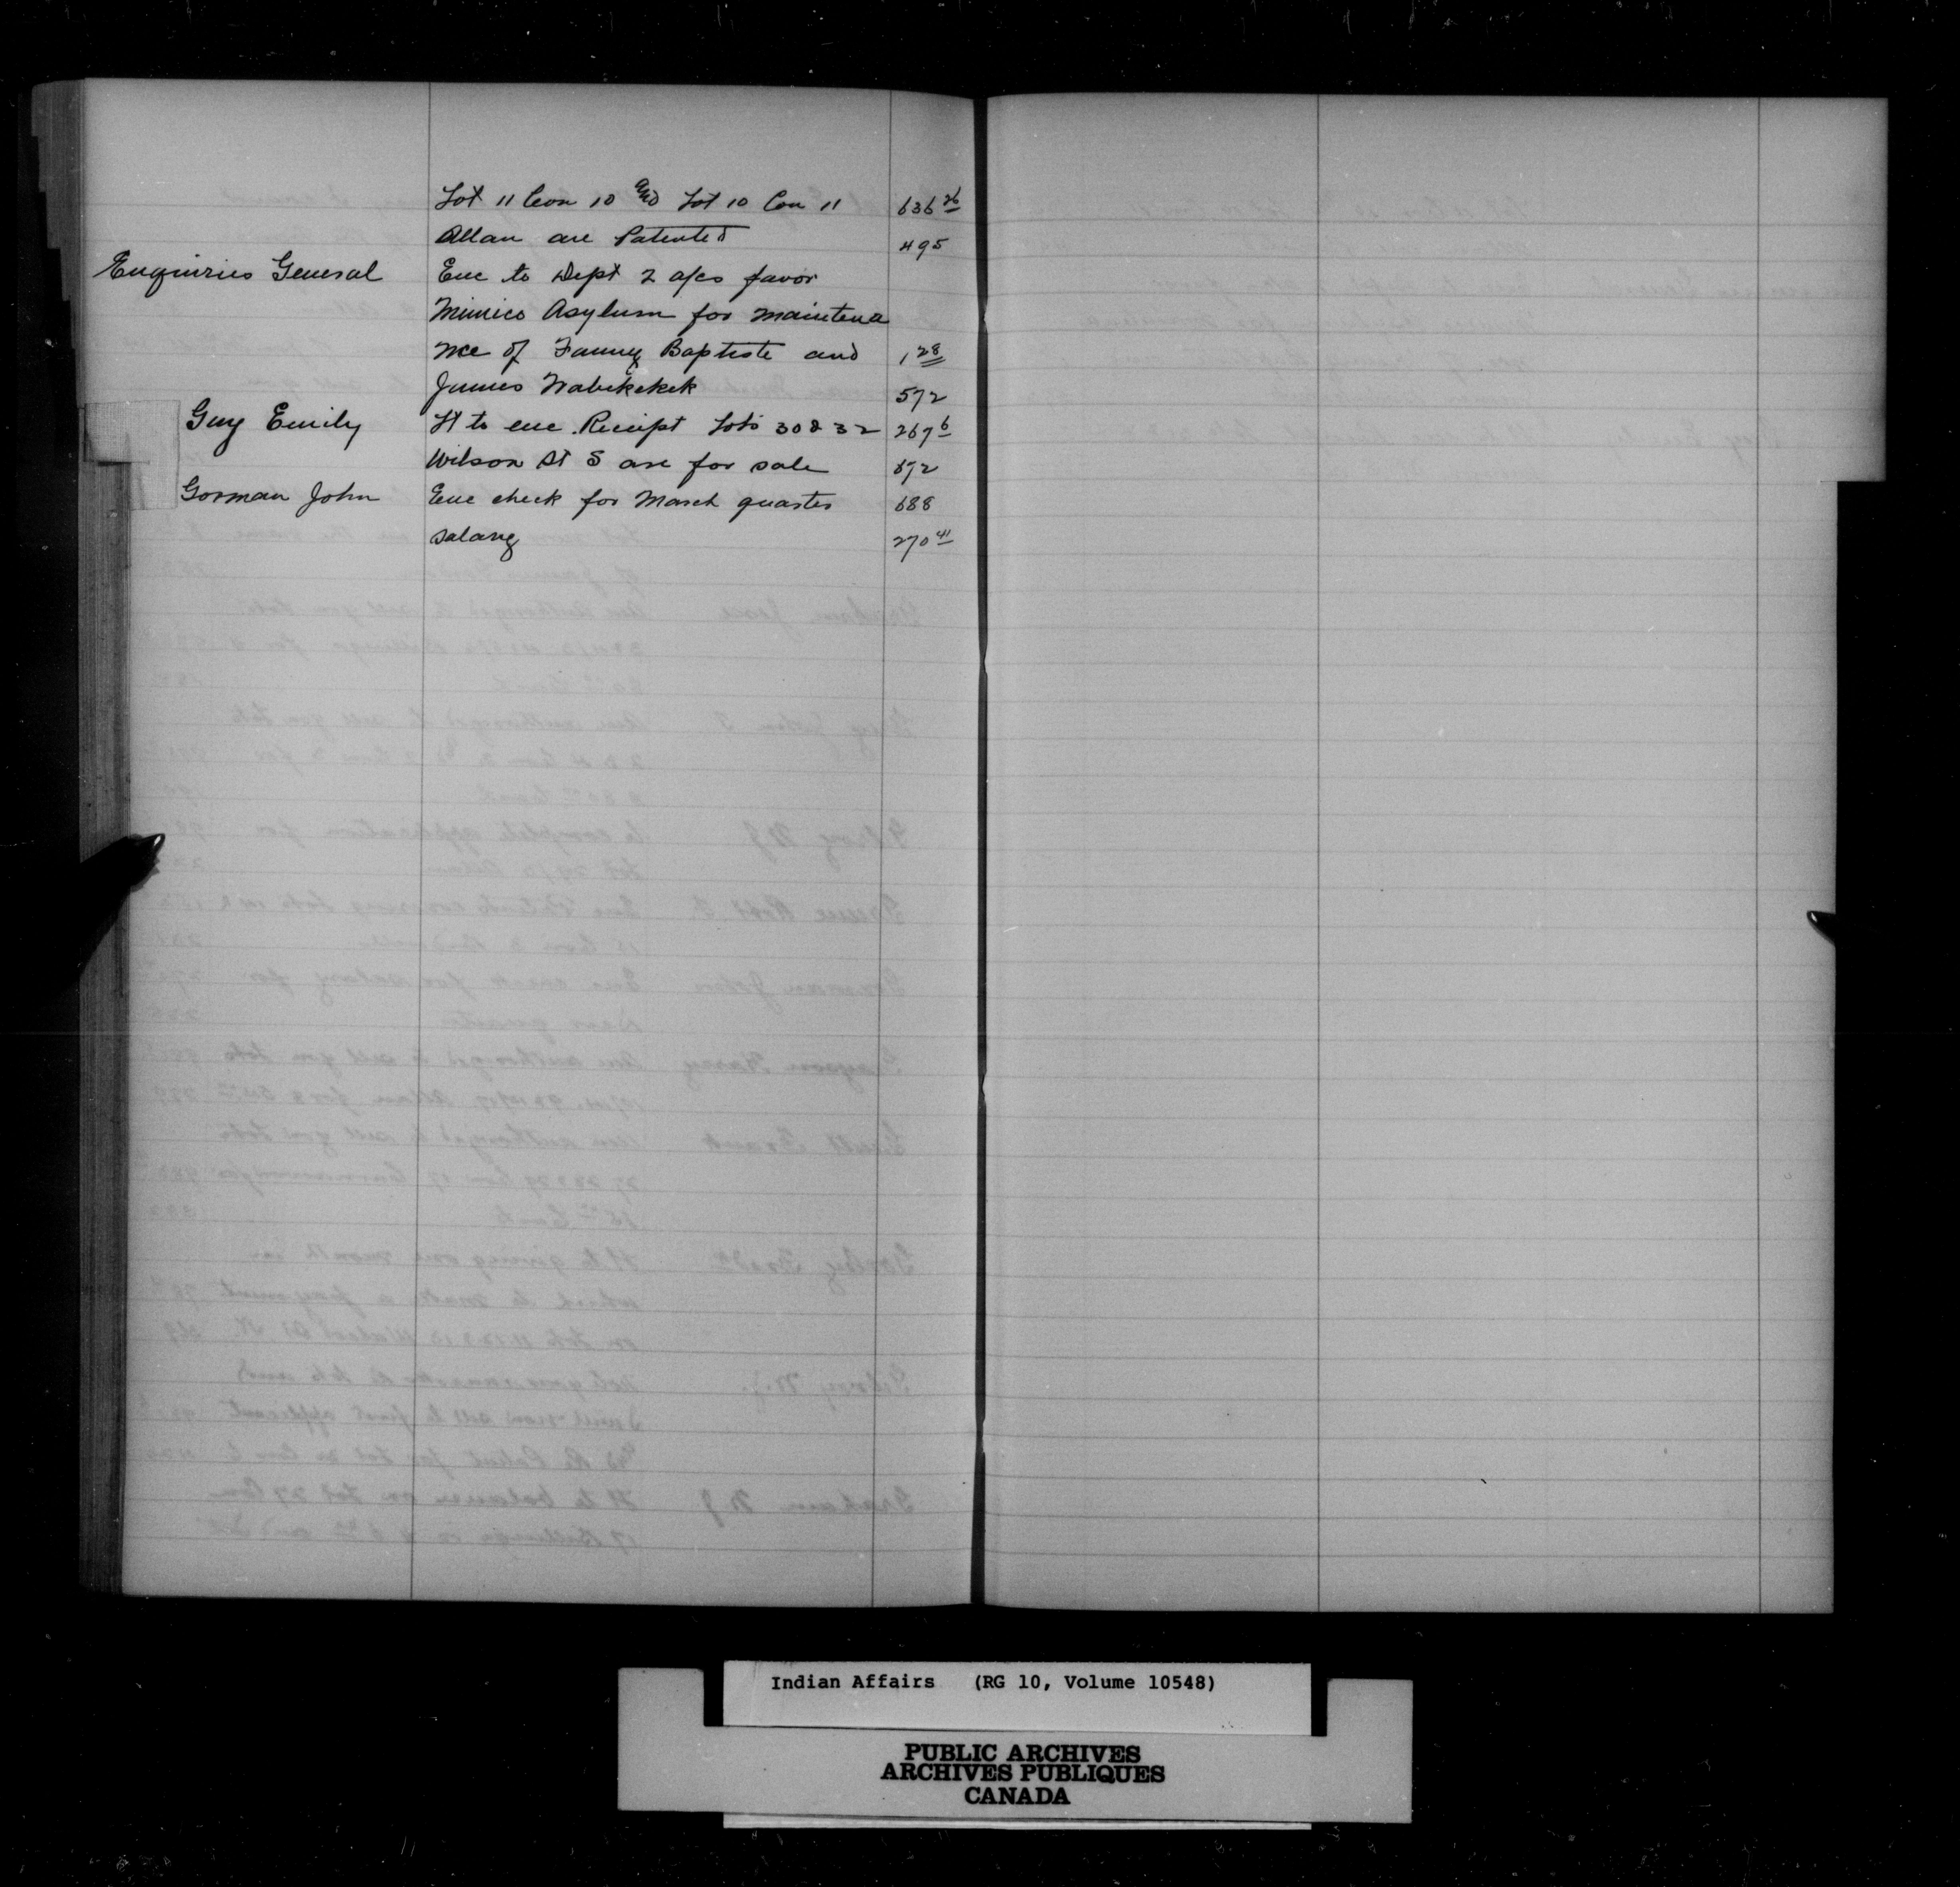 Lot 11 Con 10 and Lot 10 Con 11 636 26
Allan are Patented 495
Enquiries General Enc to Dept 2 a/cs favor
Mimico Asylum for maintena
nce of Fanny Baptiste and 1 28
James Wabekekek 572
Guy Emily H to enc Receipt Lots 30 & 32 267 6
Wilson St S are for sale 672
Gorman John Enc check for March quarter 688
salary 270 41
Indian Affairs (RG 10, Volume 10548)
PUBLIC ARCHIVES
ARCHIVES PUBLIQUES
CANADA